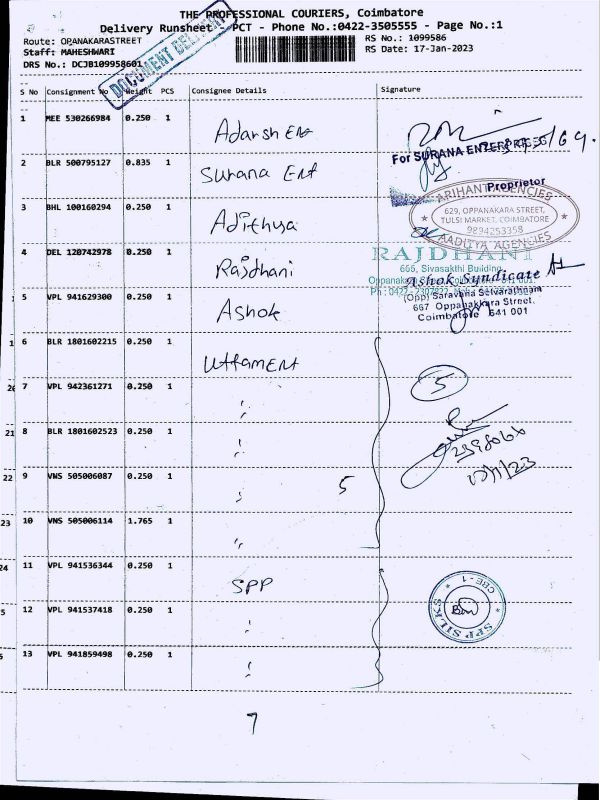 THE PROFESSIONAL COURIERS, Coimbatore
Delivery Runsheet - PCT - Phone No.:0422-3505555 - Page No.:1
Route: OPANAKARASTREET
RS No.: 1099586
Staff: MAHESHWARI
RS Date: 17-Jan-2023
DRS No.: DCJB109958601
DOCUMENT DELIVERY
S No Consignment No Weight PCS Consignee Details Signature
1 MEE 530266984 0.250 1 Adarsh Ent
For SURANA ENTERPRISES
Proprietor
2 BLR 500795127 0.835 1 Surana Ent
3 BHL 100160294 0.250 1 Adithya
ARIHANT AGENCIES
629, OPPANAKARA STREET,
TULSI MARKET, COIMBATORE
9894253358
AADITYA AGENCIES
4 DEL 120742978 0.250 1 Rajdhani
RAJDHANI
665, Sivasakthi Building
5 VPL 941629300 0.250 1 Ashok
Ashok Syndicate
(Opp) Saravana Selvarathnam
667 Oppanakkara Street,
Coimbatore 641 001
6 BLR 1801602215 0.250 1 Uttam Ent
7 VPL 942361271 0.250 1 ,,
5
8 BLR 1801602523 0.250 1 ,,
2398066
17/1/23
9 VNS 505006087 0.250 1 ,, 5
10 VNS 505006114 1.765 1 ,,
11 VPL 941536344 0.250 1 SPP
12 VPL 941537418 0.250 1 ,,
SPP SILKS
CBE - 1
13 VPL 941859498 0.250 1 ,,
7